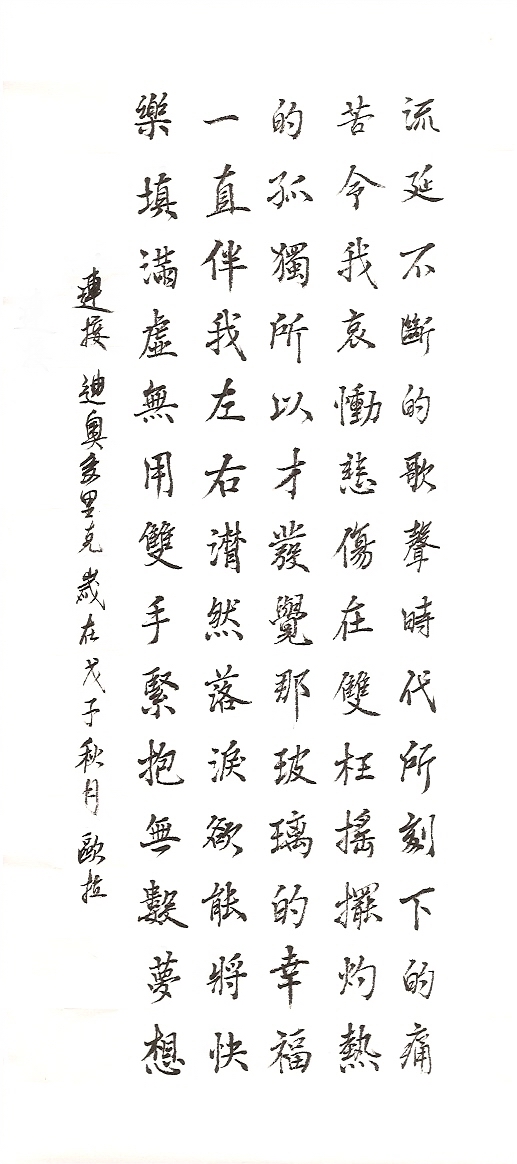 流延不斷的歌聲時代所刻下的痛
苦令我哀慟悲傷在雙枉搖擺灼熱
的孤獨所以才發覺那玻璃的幸福
一直伴我左右潸然落淚欲能將快
樂填滿虛無用雙手緊抱無數夢想
連接 迪奧多里克 歲在戊子秋月 歐拉